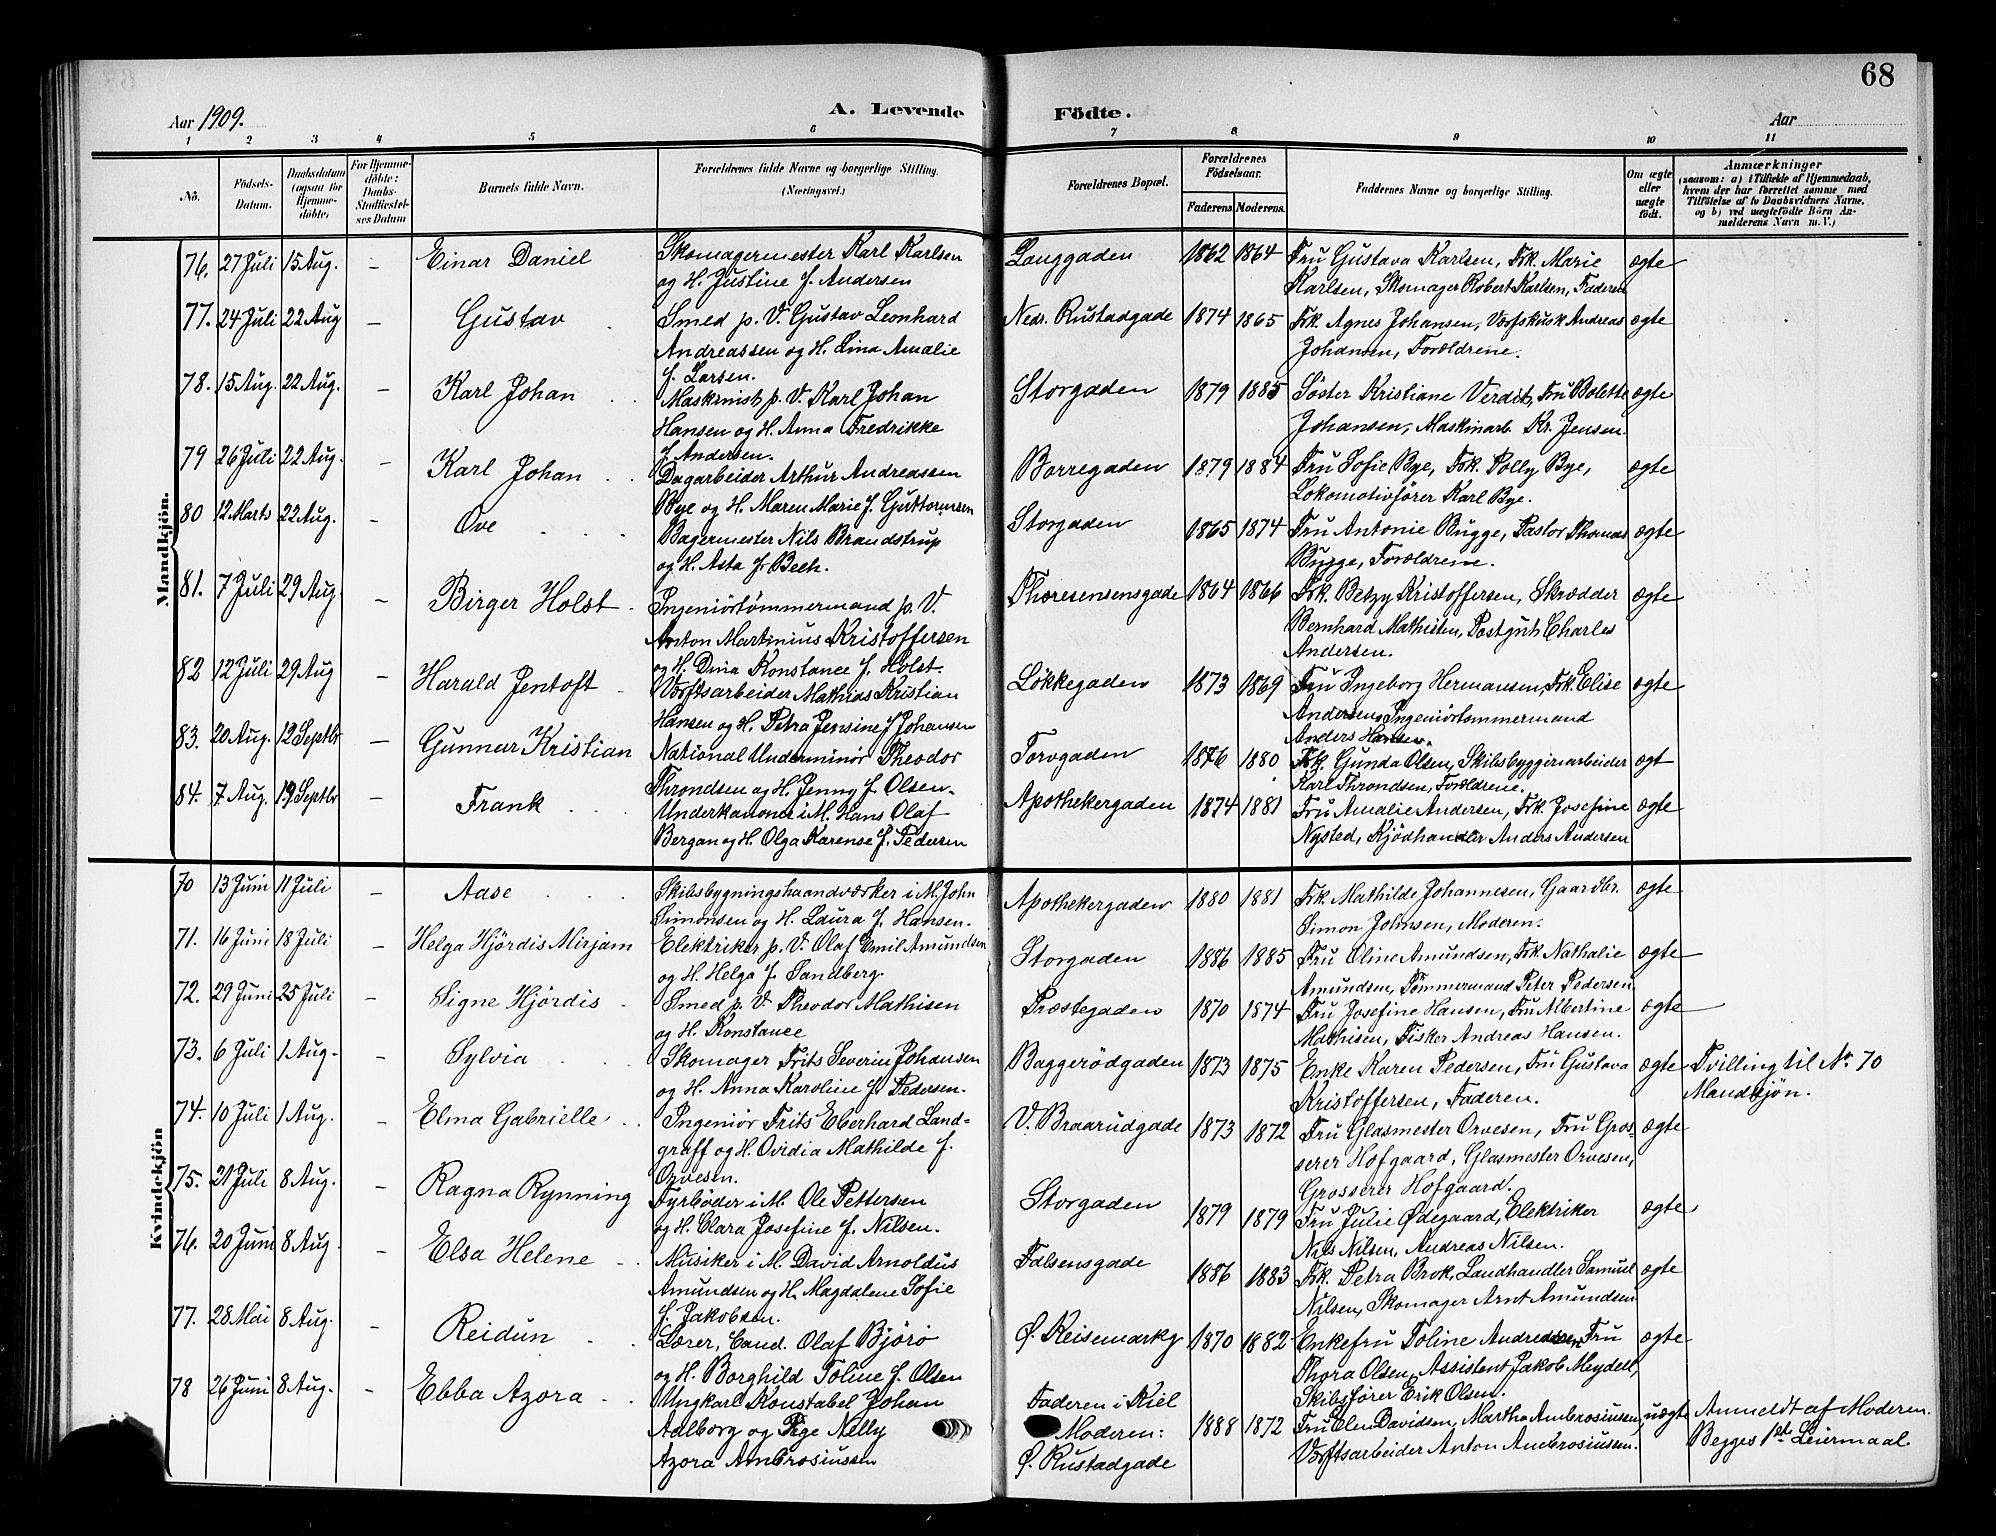 68
Aar 1909. A. Levende Födte. Aar
1 2 3 4 5 6 7 8 9 10 11
No. Födsels-Datum. Daabsdatum (ogsaa for Hjemme-döbte) For Hjemme-döbte: Daabs-Stadfæstel-ses Datum Barnets fulde Navn. Forældrenes fulde Navne og borgerlige Stilling. (Næringsvei.) Forældrenes Bopæl. Forældrenes Födselsaar. Faderens Moderens. Faddernes Navne og borgerlige Stilling. Om ægte eller uægte födt. Anmærkninger (saasom: a) i Tilfælde af Hjemmedaab, hvem der har forrettet samme med Tilföielse af to Daabsvidners Navne, og b) ved uægtefödte Börn An-melderens Navn m. V.)
Mandkjön.
76. 27 Juli 15 Aug. – Einar Daniel Skomagermester Karl Karlsen Langgaden 1862 1864 Fru Gustava Karlsen, Frk. Marie ægte
og H. Justine f. Andersen Karlsen, Skomager Robert Karlsen, Faderen
77. 24 Juli 22 Aug – Gustav Smed p. V. Gustav Leonhard Neds. Rustadgade 1874 1865 Frk. Agnes Johansen, Værfskusk Andreas ægte
Andreassen og H. Lina Amalie Johansen, Forældrene.
f. Larsen.
78. 15 Aug. 22 Aug. – Karl Johan Maskinist p. V. Karl Johan Storgaden 1879 1885 Søster Kristiane Verdit, Fru Bolette ægte
Hansen og H. Anna Fredrikke Johansen, Maskinarb. Kr. Jensen.
f. Andersen.
79 26 Juli 22 Aug. – Karl Johan Dagarbeider Arthur Andreassen Borregaden 1879 1884 Fru Sofie Bye, Frk. Polly Bye, ægte
Bye og H. Maren Marie f. Guttormsen Lokomotivfører Karl Bye.
80 12 Marts 22 Aug. – Ove Bagermester Nils Brandstrup Storgaden 1865 1874 Fru Antonie Bugge, Pastor Thomas ægte
og H. Asta f. Bech. Bugge, Forældrene.
81. 7 Juli 29 Aug. – Birger Holst Ingeniørtømmermand p. V. Thoresensensgade 1864 1866 Frk. Betzy Kristoffersen, Skrædder ægte
Anton Martinius Kristoffersen Bernhard Mathisen, Postgut Charles
og H. Dina Konstance f. Holst. Andersen.
82 12 Juli 29 Aug – Harald Jentoft Værftsarbeider Mathias Kristian Løkkegaden 1873 1869 Fru Ingeborg Hermansen, Frk. Elise ægte
Hansen og H. Petra Jensine f Johansen Andersen, Ingeniørtømmermand
Anders Hansen.
83. 20 Aug. 12 Septbr – Gunnar Kristian National Underminör Theodor Torvgaden 1876 1880 Frk. Gunda Olsen, Skibsbyggeriarbeider ægt
Throndsen og H. Jenny f. Olsen. Karl Throndsen, Forældrene.
84. 7 Aug. 19 Septbr – Frank Underkanoner i M. Hans Olaf Apothekergaden 1874 1881 Fru Amalie Andersen, Frk. Josefine ægte
Bergan og H. Olga Karense f. Pedersen Nysted, Kjödhandler Anders Andersen
Kvindekjön
70 13 Juni 11 Juli – Aase Skibsbygningshaandværker i M. John Apothekergaden 1880 1881 Frk. Mathilde Johannesen, Gaardbr. ægte
Simonsen og H. Laura f. Hansen. Simon Johnsen, Moderen.
71. 16 Juni 18 Juli – Helga Hjördis Mirjam Elektriker p. V. Olaf Emil Amundsen Storgaden 1886 1885 Fru Oline Amundsen, Frk. Nathalie ægte
og H. Helga f. Sandberg. Amundsen, Tømmermand Peter Pedersen.
72. 29 Juni 25 Juli – Signe Hjördis Smed p. V. Theodor Mathisen Præstegaden 1870 1874 Fru Josefine Hansen, Fru Albertine ægte
og H. Konstance Mathisen, Fisker Andreas Hansen.
73. 6 Juli 1 Aug. – Sylvia Skomager Frits Severin Johansen Baggerödgaden 1873 1875 Enke Karen Pedersen, Fru Gustava ægte Tvilling til No 70
og H. Anna Karoline f. Pedersen. Kristoffersen, Faderen. Mandkjön.
74. 10 Juli 1 Aug. – Elma Gabrielle Ingeniør Frits Eberhard Land= V. Braarudgade 1873 1872 Fru Glasmester Orvesen, Fru Gros= ægte
graff og H. Ovidia Mathilde f. serer Hofgaard, Glasmester Orvesen,
Orvesen. Grosserer Hofgaard.
75. 21 Juli 8 Aug. – Ragna Rynning Fyrbøder i M. Ole Pettersen Storgaden 1879 1879 Fru Julie Ødegaard, Elektriker ægte
og H. Clara Josefine f. Nilsen. Nils Nilsen, Andreas Nilsen.
76. 20 Juni 8 Aug. – Elsa Helene Musiker i M. David Arnoldus Falsensgade 1886 1883 Frk. Petra Brok, Landhandler Samuel ægte
Amundsen og H. Magdalene Sofie Nilsen, Skomager Arnt Amundsen
f. Jakobsen.
77. 28 Mai 8 Aug. – Reidun Lærer, Cand. Olaf Björo Ø. Keisemarkg 1870 1882 Enkefru Toline Andreasen, Fru ægte
og H. Borghild Toline f. Olsen Thora Olsen, Assistent Jakob Meydell,
Skibsfører Erik Olsen.
78 26 Juni 8 Aug. – Ebba Azora Ungkarl Konstabel Johan Faderen i Kiel 1888 1872 Fru Elen Davidsen, Martha Ambrosiussen, uægte Anmeldt af Moderen.
Aalborg og Pige Nelly Moderen: Værftsarbeider Anton Ambrosiussen. Begges 1ste Leiermaal.
Azora Ambrosiussen Ø. Rustadgade